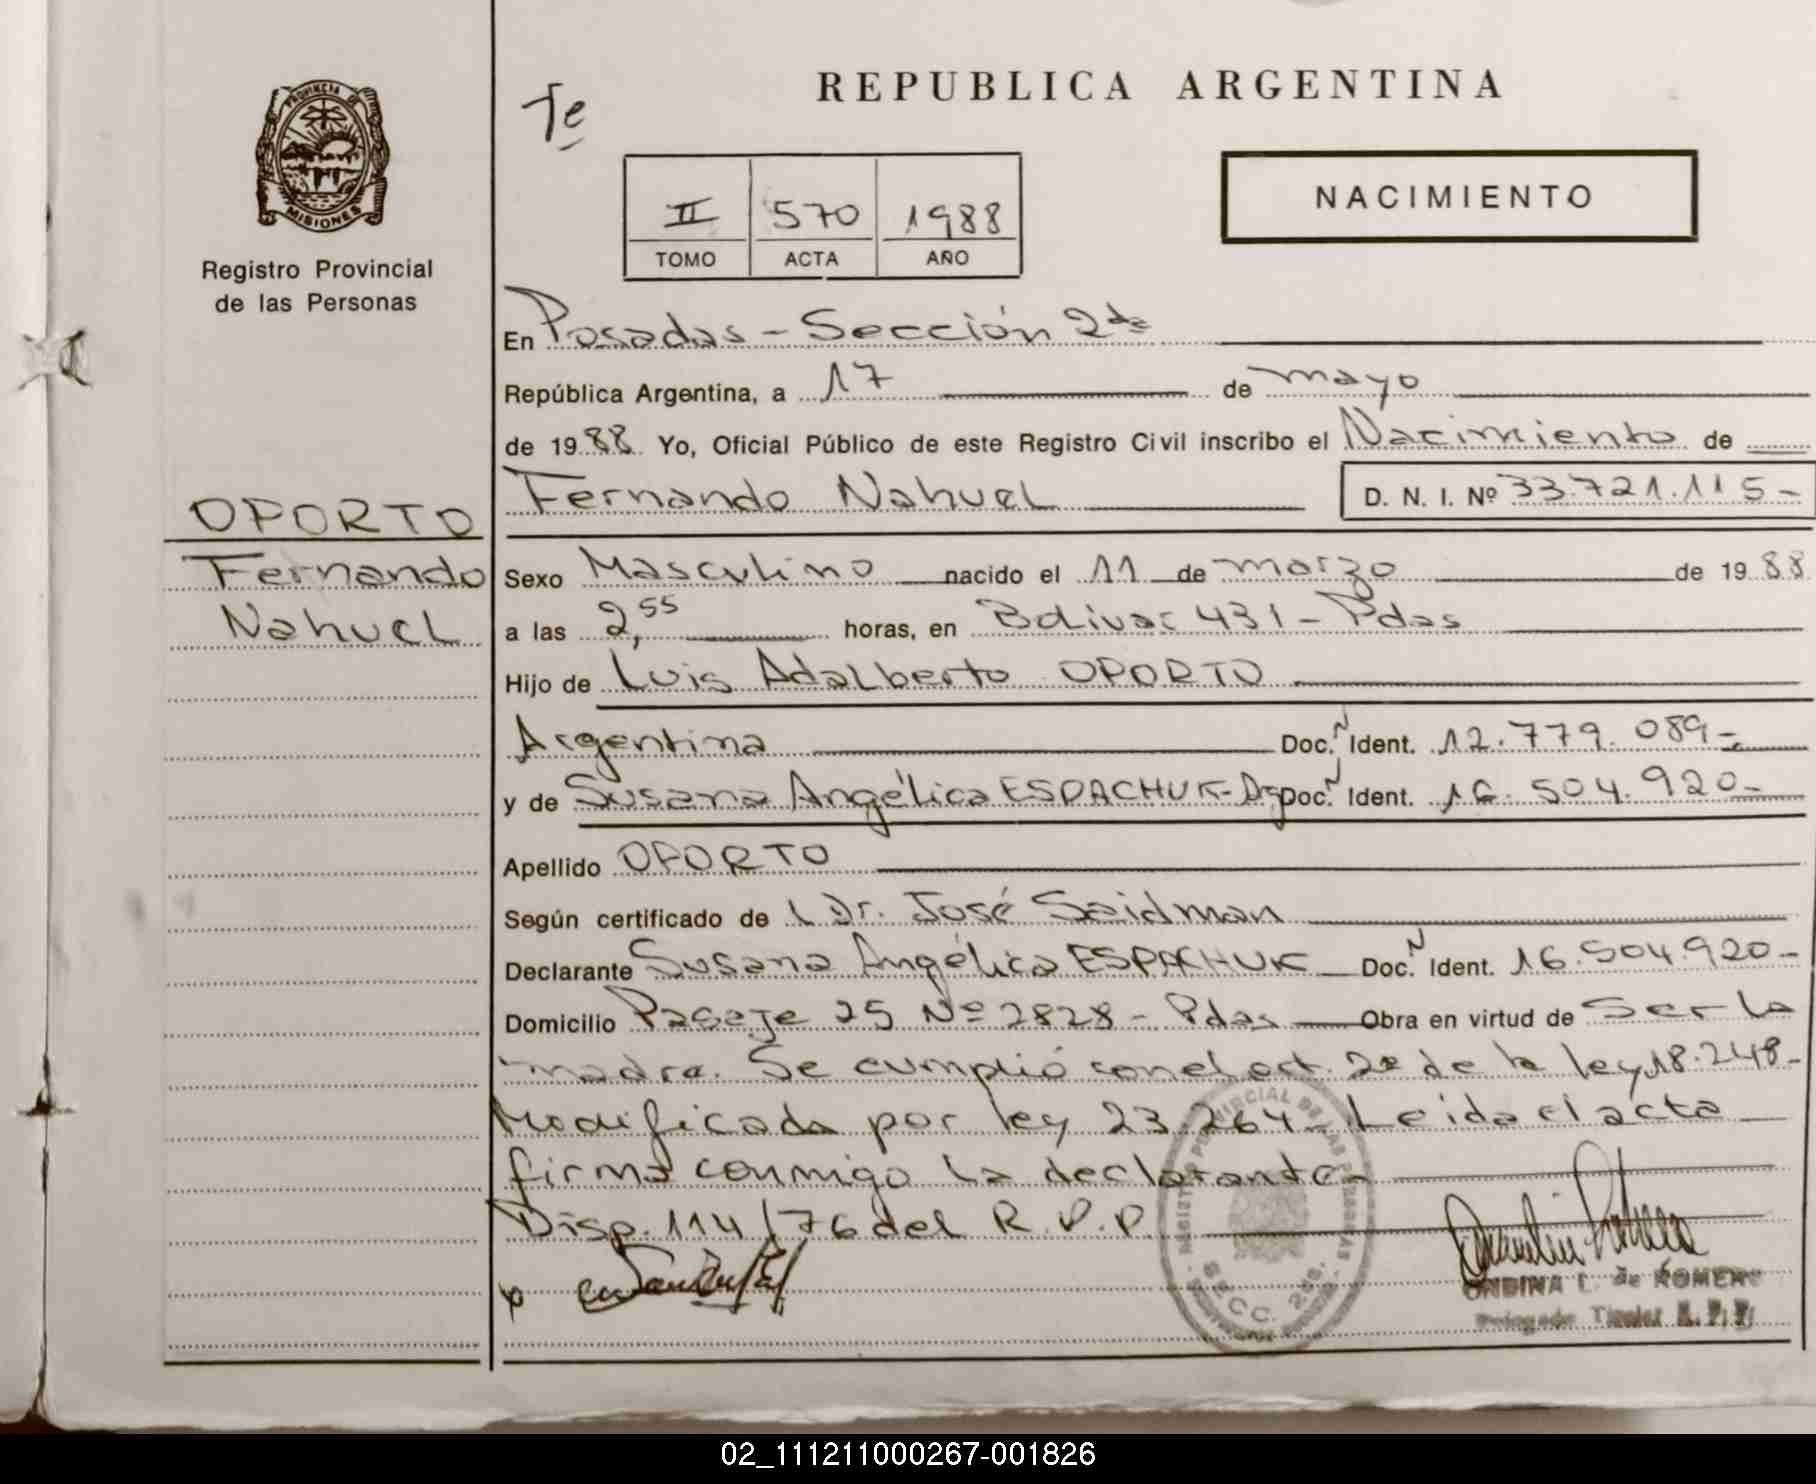 PROVINCIA DE
MISIONES
Registro Provincial
de las Personas
OPORTO
Fernando
Nahuel
Te
REPUBLICA ARGENTINA
II 570 1988
TOMO ACTA AÑO
NACIMIENTO
En Posadas - Sección 2da
República Argentina, a 17 de mayo
de 1988 Yo, Oficial Público de este Registro Civil inscribo el Nacimiento de
Fernando Nahuel D. N. I. Nº 33.721.115-
Sexo Masculino nacido el 11 de marzo de 1988
a las 2,55 horas, en Bolivar 431 - Pdas
Hijo de Luis Adalberto OPORTO
Argentina Doc. N Ident. 12.779.089-
y de Susana Angélica ESPACHUK - Arg Doc. N Ident. 16.504.920-
Apellido OPORTO
Según certificado de l Dr. José Saidman
Declarante Susana Angélica ESPACHUK Doc. N Ident. 16.504.920-
Domicilio Pasaje 25 Nº 2828 - Pdas Obra en virtud de ser la
madre. Se cumplió con el art. 2º de la ley 18.248-
Modificada por ley 23.264- Leida el acta
firma conmigo la declarante-
Disp. 114/76 del R.P.P.
REGISTRO PROVINCIAL DE LAS PERSONAS
SECC. 2da.
ONDINA L. de ROMERO
Delegado Titular R. P. P.
02_111211000267-001826